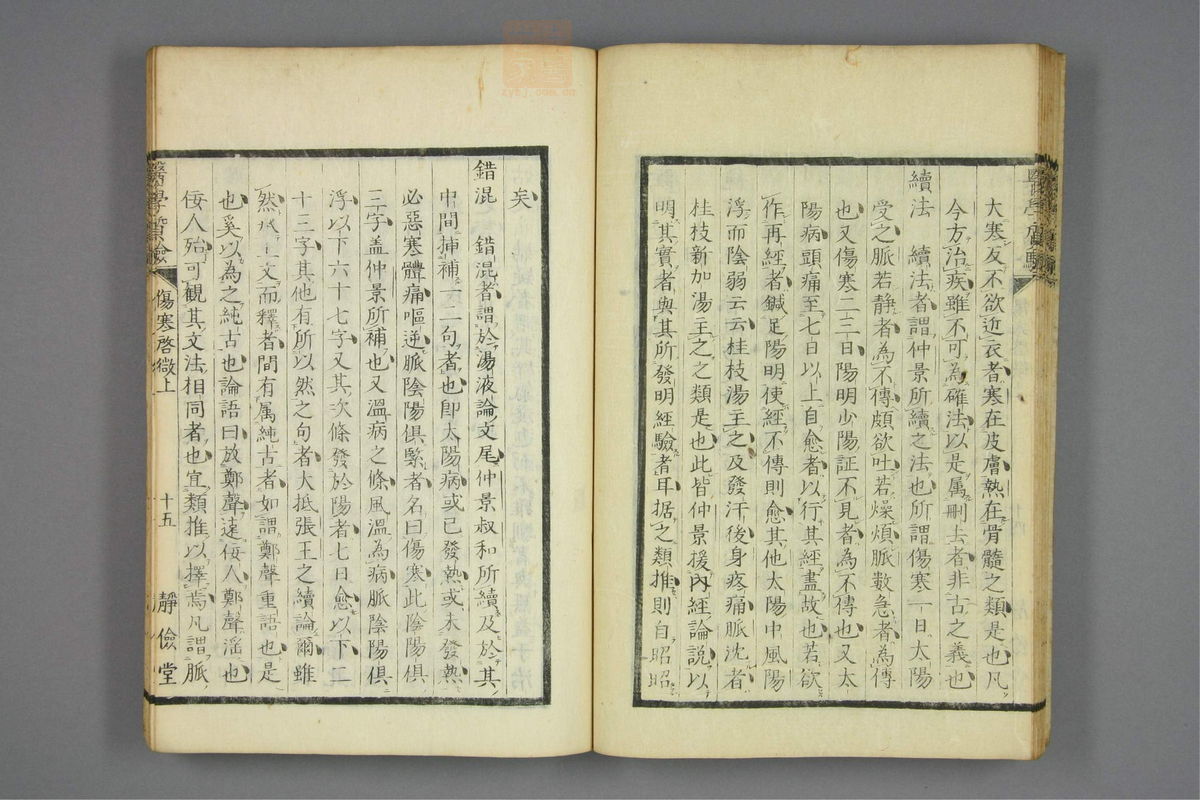 大寒反不欲近衣者寒在皮膚熱在骨髓之類是也凡
今方治疾雖不可為確法以是属刪去者非古之義也
續法　續法者謂仲景所續之法也所謂傷寒一日太陽
受之脈若静者為不傳頗欲吐若燥煩脈数急者為傳
也又傷寒二三日陽明少陽証不見者為不傳也又太
陽病頭痛至七日以上自愈者以行其經盡故也若欲
作再經者鍼足陽明使經不傳則愈其他太陽中風陽
浮而陰弱云云桂枝湯主之及發汗後身疼痛脈沈者
桂枝新加湯主之之類是也此皆仲景援內經論說以
明其實者與其所發明經驗者耳据之類推則自昭昭
矣
錯混　錯混者謂於湯液論文尾仲景叔和所續及於其
中間挿補一二句者也即太陽病或已發熱或未發熱
必惡寒體痛嘔逆脈陰陽俱緊者名曰傷寒此陰陽俱
三字盖仲景所補也又溫病之條風溫為病脈陰陽俱
浮以下六十七字又其次條發於陽者七日愈以下二
十三字其他有所以然之句者大抵張王之續論爾雖
然上文而釋者間有属純古者如謂鄭聲重語也是
也奚以為之純古也論語曰放鄭聲遠佞人鄭聲淫也
佞人殆可観其文法相同者也宜類推以擇焉凡謂脈
傷寒啓微上
十五
靜儉堂
zysj.com.cn